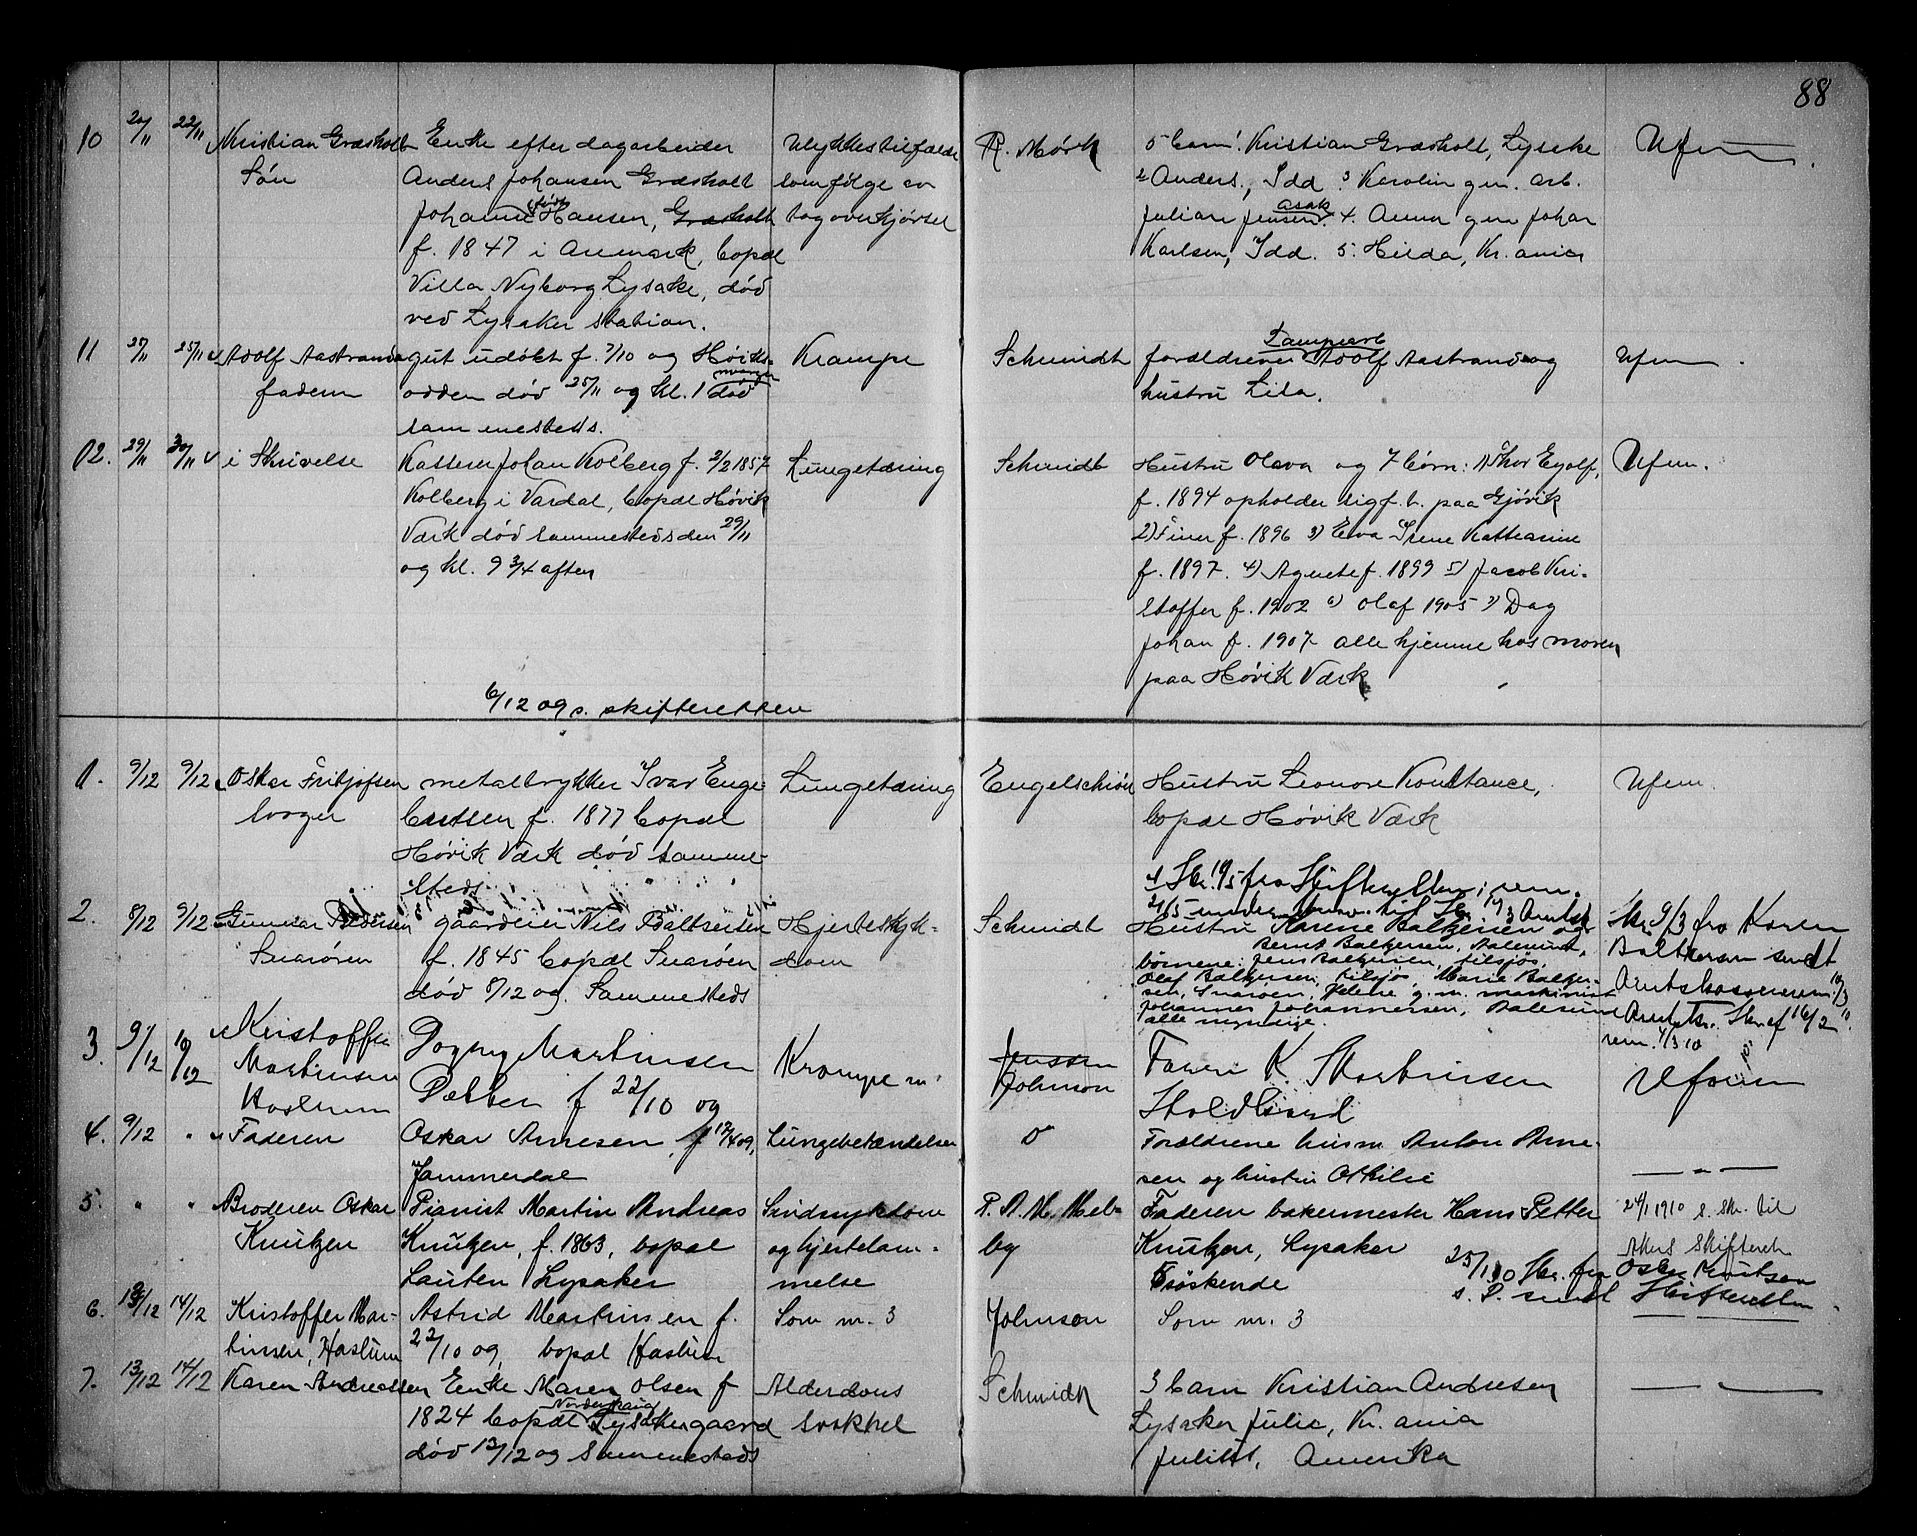 88
10 20/11 22/11 Kristian Græsholt Søn
Enke efter dagarbeider
Anders Johansen Græsholt
Johanne født Hansen, Græsholt
f. 1847 i Aremark, bopæl
Villa Nyborg Lysaker, død
ved Lysaker station.
Ulykkestilfælde
som følge av
togoverkjørsel
R. Mørk
5 barn: Kristian Græsholt, Lysaker
2 Anders, Idd 3 Karolin gm. arb.
Julian Jensen Asak 4. Anna gm Johan
Karlsen, Idd. 5. Hilda, Kr.ania
Ufm
11 25/11 25/11 Adolf Aastrand
faderen
gut udøbt f. 7/10 09 Høviks-
odden død 25/11 09 kl. 1 morgen død
sammesteds.
Krampe
Schmidt
forældrene Lampearb Adolf Aastrand og
hustru Lila.
Ufm
12. 29/11 30/11 i Skrivelse
Kasserer Johan Kolberg f. 2/2 1857
Kolberg i Vardal, bopæl Høvik
Værk død sammesteds den 29/11
09 kl. 9 3/4 aften
Lungetæring
Schmidt
Hustru Olava og 7 børn: 1) Thor Eyolf,
f. 1894 opholder sig f. t. paa Gjøvik
2) Einer f. 1896 3) Eva Irene Katharine
f. 1897. 4) Agnete f. 1899 5) Jacob Kri-
stoffer f. 1902 6) Olaf 1905 7) Dag
Johan f. 1907 alle hjemme hos moren
paa Høvik Værk
Ufm.
6/12 09 s. skifteretten
1. 9/12 9/12 Oskar Fritjofsen
svoger
metaltrykker Ivar Enge-
bretsen f. 1877 bopæl
Høvik Værk død samme-
steds
Lungetæring
Engelschiøn
Hustru Leonore Konstance,
bopæl Høvik Værk
Ufm.
2. 8/12 9/12 Gunnar Pedersen
Snarøen
gaardeier Nils Baltzersen
f. 1845 bopæl Snarøen
død 8/12 09 Sammesteds
Hjertesyk-
dom
Schmidt
Skr. 19/5 fra Skifteretten; rem.
Hustru Karene Baltzersen og
børnene: Bernt Baltzersen, Aalesund,
Jens Baltzersen, Lilsjøs,
Olaf Baltzersen, Lilsjøs, Marie Baltzer-
sen, Snarøen, Helene g. m. maskinist
Johannes Johannessen, Aalesund
alle myndige.
Skr. 9/3 fra Karen
Baltzersen sendt
Amtskassereren 10/3
rem. 1/3 10
3. 9/12 10/12 Kristoffer
Martinsen
Haslum
Dagny Martinsen
Dælber f 22/10 09
Krampe
Jenssen
Johnson
Faren K. Martinsen
Ufm
4. 9/12 " Faderen
Oskar Arnesen, f 12/4 09,
Jammerdal
Lungebetændelse
Do
Forældrene husm Anton Arne-
sen og hustru Othilie
— " —
5. " " Broderen Oskar
Knutzen
Pianist Martin Andreas
Knutzen, f. 1863, bopæl
Lauten Lysaker
Sindssykdom
og hjertelam-
melse
P. A. M. Mel-
by
Faderen bakermester Hans Petter
Knutzen, Lysaker
5 søskende
24/1 1910 s. Skr. til
Akers Skifteret
25/1 10 Skr. fra Oskar Knutsen
s. D. sendt Skifteretten
6. 13/12 14/12 Kristoffer Mar-
tinsen, Haslum
Astrid Martinsen f.
22/10 09, bopæl Haslum
Som m. 3
Johnson
Som m. 3
7. 13/12 14/12 Karen Andreassen
Enke Maren Olsen f
1824 bopæl Nordenhaug Lysakergaard
død 12/12 09 Sammesteds
Alderdoms
svakhet
Schmidt
3 barn Kristian Andresen
Lysaker Julie, Kr.ania
Julius, Amerika